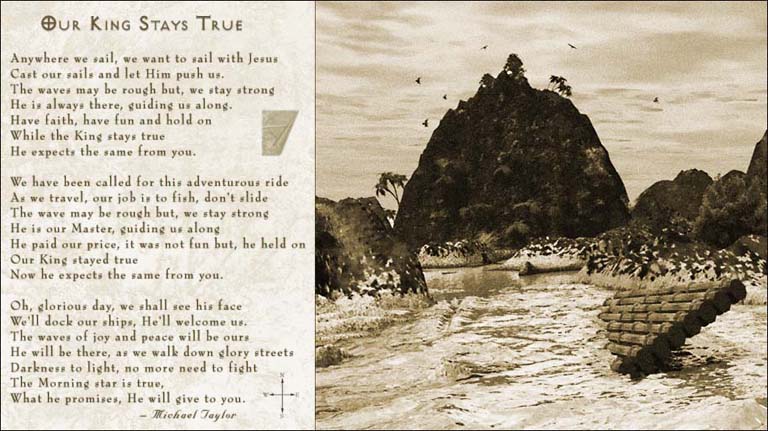 Our King Stays True
Anywhere we sail, we want to sail with Jesus
Cast our sails and let Him push us.
The waves may be rough but, we stay strong
He is always there, guiding us along.
Have faith, have fun and hold on
While the King stays true
He expects the same from you.
We have been called for this adventurous ride
As we travel, our job is to fish, don't slide
The wave may be rough but, we stay strong
He is our Master, guiding us along
He paid our price, it was not fun but, he held on
Our King stayed true
Now he expects the same from you.
Oh, glorious day, we shall see his face
We'll dock our ships, He'll welcome us.
The waves of joy and peace will be ours
He will be there, as we walk down glory streets
Darkness to light, no more need to fight
The Morning star is true,
What he promises, He will give to you.
– Michael Taylor
N
W E
S